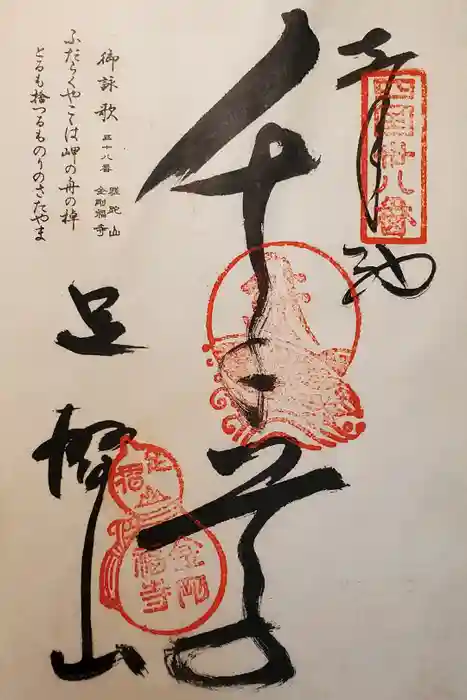 四国卅八番
奉納
千手
御詠歌 三十八番 蹉跎山 金剛福寺
ふたらくやこゝは岬の舟の棹
とるも捨つるものりのさたやま
足摺山
足摺山
金剛福寺